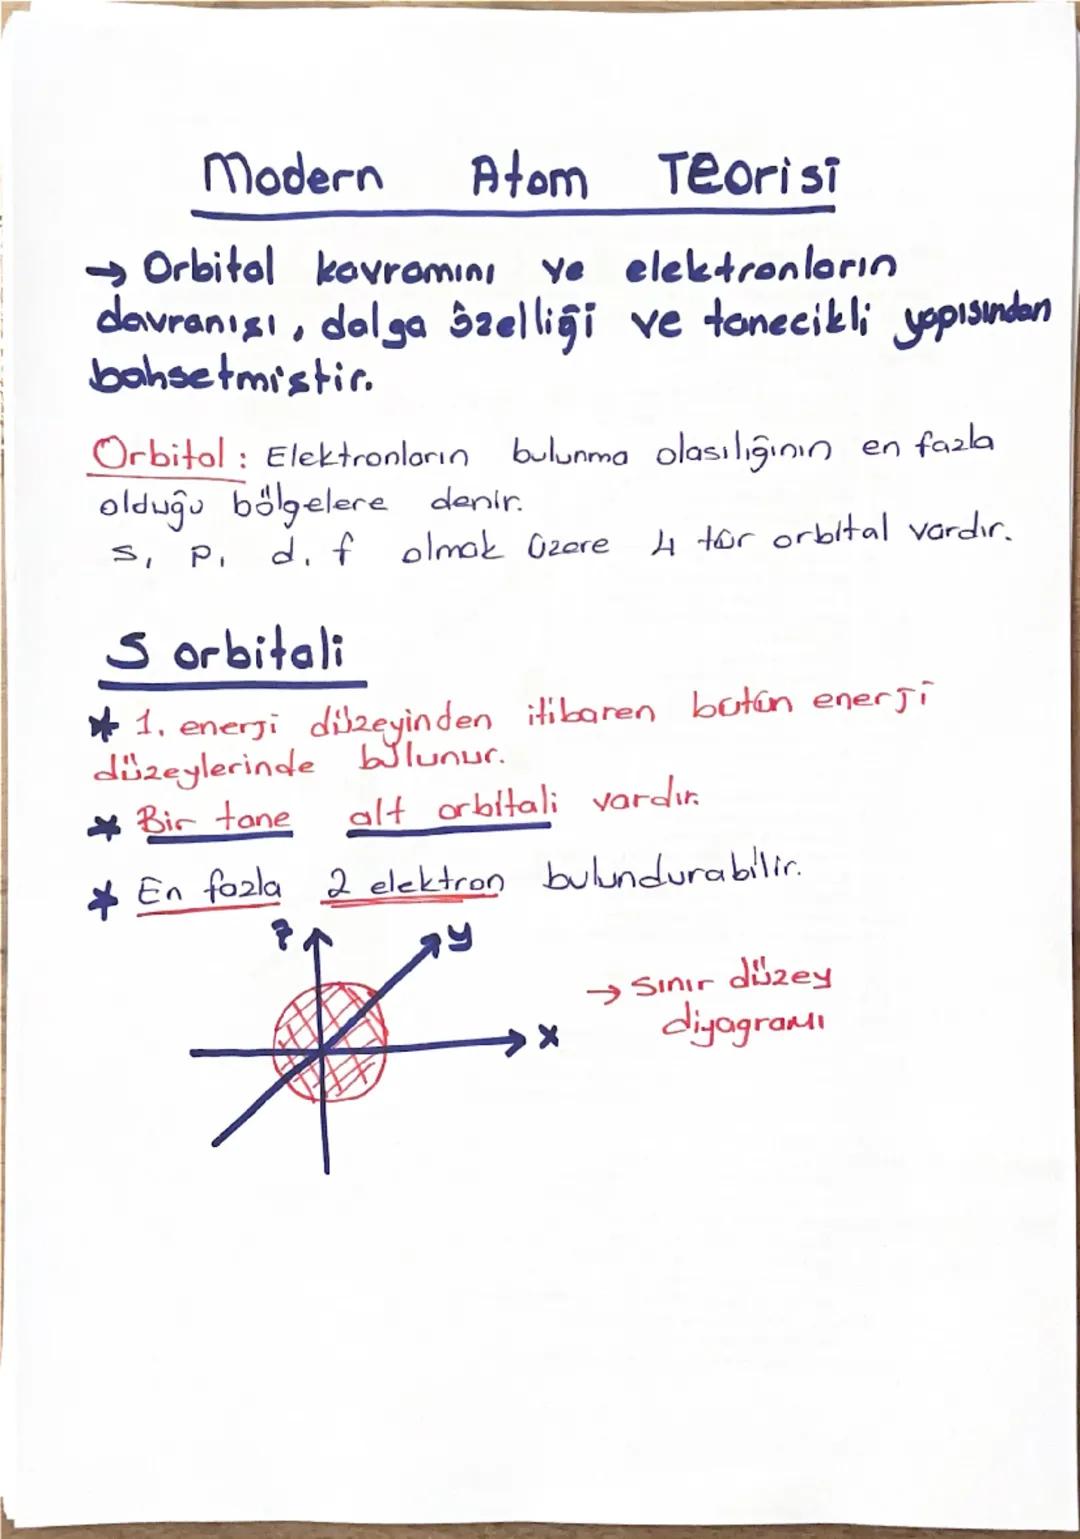 Modern Atom Teorisi
→ Orbital kavramını ve elektronların
davranışı, dalga özelliği ve tanecikli yapısından
bahsetmiştir.
Orbital : Elektronların bulunma olasılığının en fazla
olduğu bölgelere denir.
s, p, d, f olmak üzere 4 tür orbital vardır.
S orbitali
* 1. enerji düzeyinden itibaren bütün enerji
düzeylerinde bulunur.
* Bir tane alt orbitali vardır.
* En fazla 2 elektron bulundurabilir.
z y
→ Sınır düzey
diyagramı
x